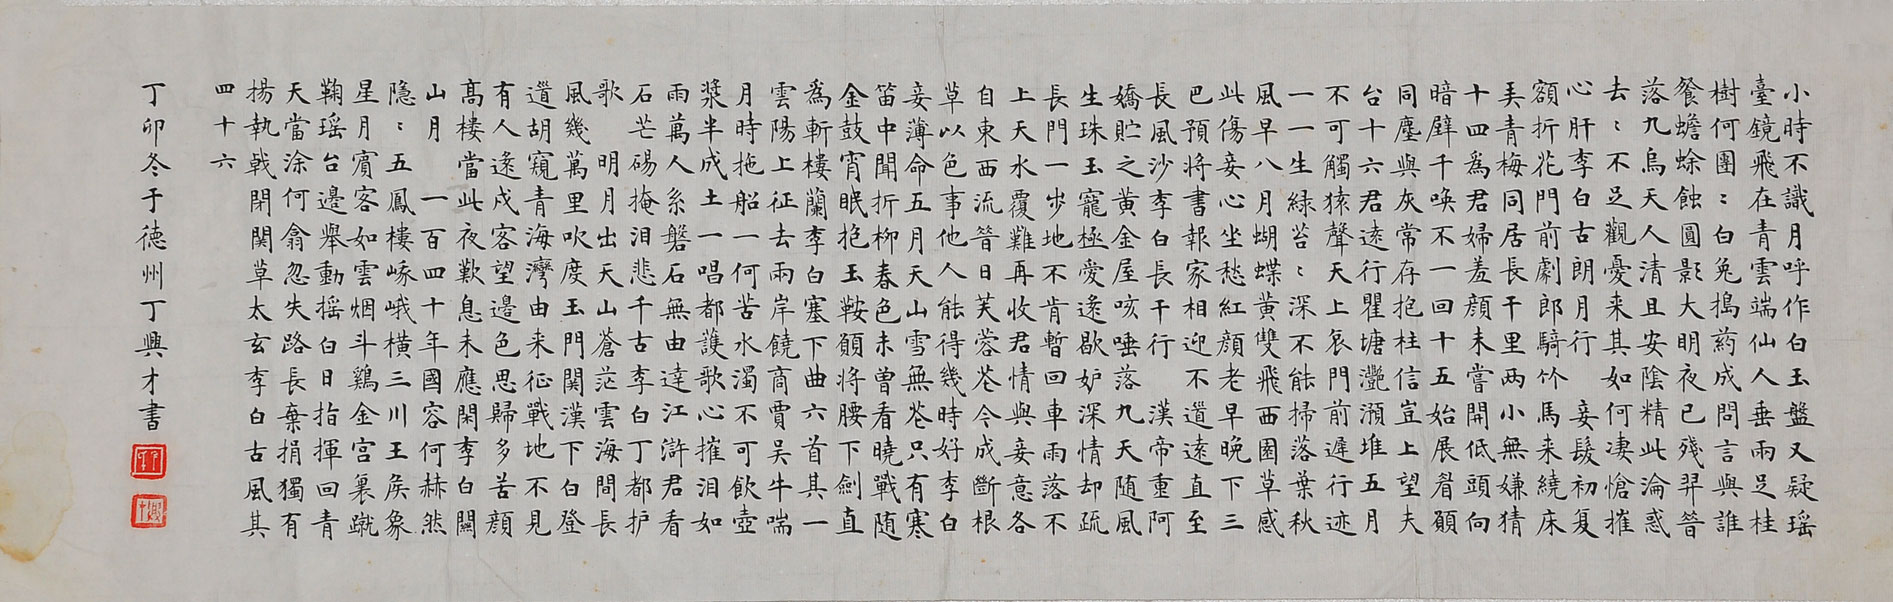 小時不識月呼作白玉盤又疑瑶
臺鏡飛在青雲端仙人垂兩足桂
樹何團〻白兔搗葯成問言與誰
餐蟾蜍蝕圓影大明夜已殘羿昔
落九烏天人清且安陰精此淪惑
去〻不足觀憂来其如何凄愴摧
心肝李白古朗月行 妾髮初复
額折花門前劇郎騎竹馬来繞床
弄青梅同居長干里两小無嫌猜
十四爲君婦羞顔未嘗開低頭向
暗壁千唤不一回十五始展眉願
同塵與灰常存抱柱信豈上望夫
台十六君遠行瞿塘灔澦堆五月
不可觸猿聲天上哀門前遲行迹
一一生緑苔〻深不能掃落葉秋
風早八月蝴蝶黄雙飛西園草感
此傷妾心坐愁紅顔老早晚下三
巴預将書報家相迎不道遠直至
長風沙李白長干行 漢帝重阿
嬌貯之黄金屋咳唾落九天随風
生珠玉寵極愛遠歇妒深情却疏
長門一步地不肯暫回車雨落不
上天水覆難再收君情與妾意各
自東西流昔日芙蓉花今成斷根
草以色事他人能得幾時好李白
妾薄命五月天山雪無花只有寒
笛中聞折柳春色未曾看曉戰随
金鼓宵眠抱玉鞍願将腰下劍直
爲斬樓蘭李白塞下曲六首其一
雲陽上征去兩岸饒商賈吴牛喘
月時拖船一何苦水濁不可飲壺
漿半成土一唱都護歌心摧泪如
雨萬人系磐石無由達江滸君看
石芒碭掩泪悲千古李白丁都护
歌 明月出天山蒼茫雲海間長
風幾萬里吹度玉門関漢下白登
道胡窺青海灣由来征戰地不見
有人還戍客望邊色思歸多苦顔
高樓當此夜歎息未應閑李白關
山月 一百四十年國容何赫然
隐〻五鳳樓峨峨横三川王侯象
星月賓客如雲烟斗鷄金宫裏蹴
鞠瑶台邊舉動摇白日指揮回青
天當涂何翕忽失路長棄捐獨有
揚執戟閉関草太玄李白古風其
四十六
丁卯冬于德州丁興才書